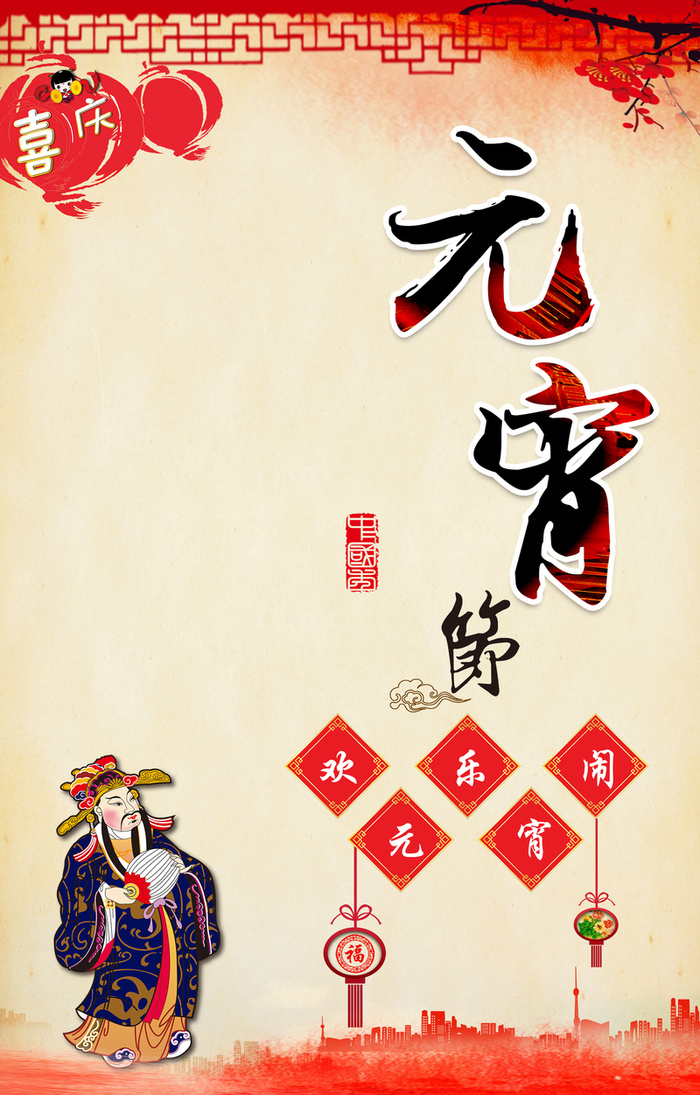 喜庆
元宵
節
中國
欢乐闹
元宵
福